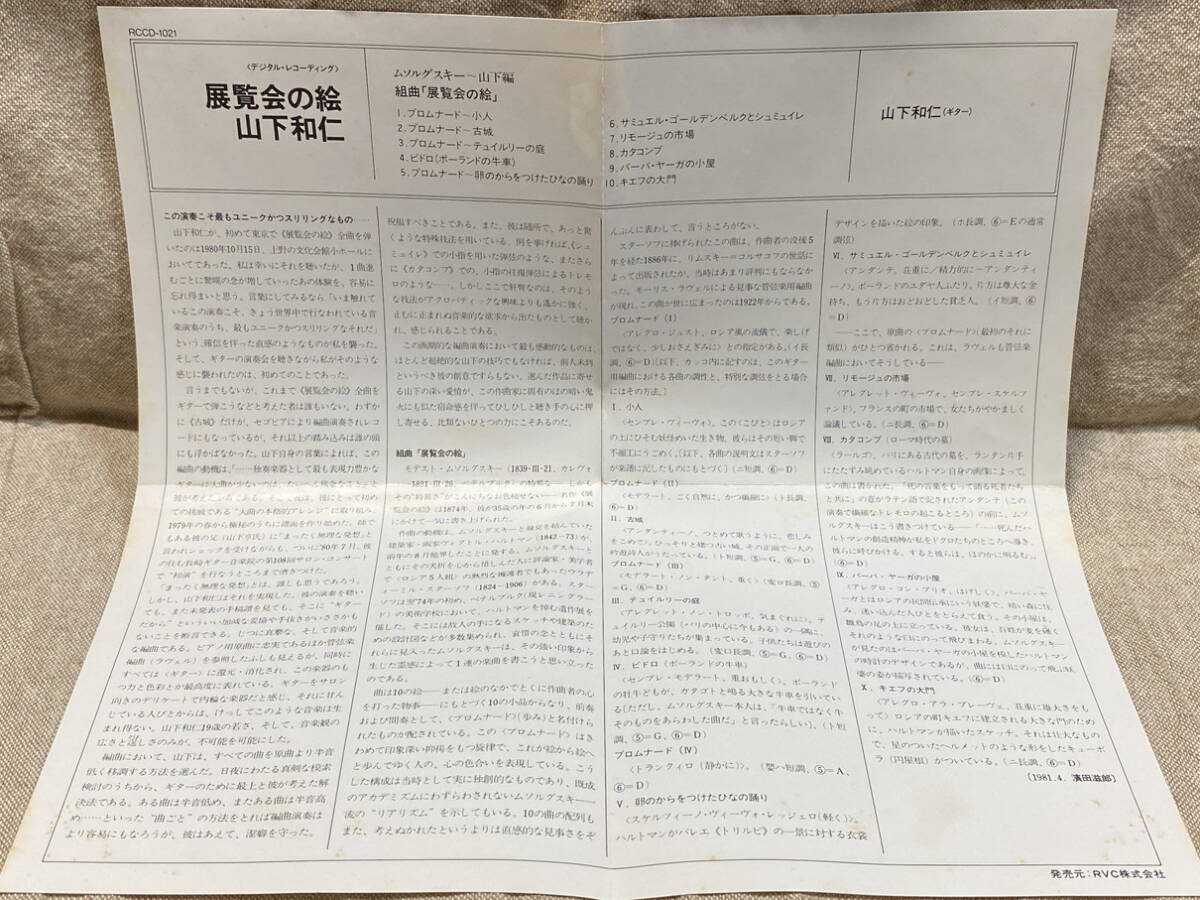 RCCD-1021
〈デジタル・レコーディング〉
展覧会の絵
山下和仁
ムソルグスキー～山下編
組曲「展覧会の絵」
1. プロムナード～小人
2. プロムナード～古城
3. プロムナード～テュイルリーの庭
4. ビドロ（ポーランドの牛車）
5. プロムナード～卵のからをつけたひなの踊り
6. サミュエル・ゴールデンベルクとシュミュイレ
7. リモージュの市場
8. カタコンブ
9. バーバ・ヤーガの小屋
10. キエフの大門
山下和仁（ギター）
この演奏こそ最もユニークかつスリリングなもの……
山下和仁が、初めて東京で《展覧会の絵》全曲を弾
いたのは1980年10月15日、上野の文化会館小ホールに
おいてであった。私は幸いにそれを聴いたが、1曲進
むごとに驚嘆の念が増していったあの体験を、容易に
忘れ得まいと思う。言葉にしてみるなら「いま触れて
いるこの演奏こそ、きょう世界中で行なわれている音
楽演奏のうち、最もユニークかつスリリングなそれだ」
という、確信を伴った直感のようなものが私を襲った。
そして、ギターの演奏会を聴きながら私がそのような
感じに襲われたのは、初めてのことであった。
言うまでもないが、これまで《展覧会の絵》全曲を
ギターで弾こうなどと考えた者は誰もいない。わずか
に《古城》だけが、セゴビアにより編曲演奏されレコ
ードにもなっているが、それ以上の踏み込みは誰の頭
にも浮かばなかった。山下自身の言葉によれば、この
編曲の動機は「……独奏楽器として最も表現力豊かな
ギターに大曲が少ないのは、たいへん残念なことだと
の挑戦である“大曲の本格的アレンジ”に取り組み、
1979年の春から極秘のうちに譜面を作り始めた。師で
もある彼の父（山下亨氏）に「まったく無理な発想」と
言われショックを受けながらも、ついに'80年7月、彼
の住む長崎ギター音楽院の第108回サロン・コンサート
で“初演”を行なうところまで漕ぎつけた。
「まったく無理な発想」とは、誰しも思うであろう。
しかし、山下和仁はそれを実現した。彼の演奏を聴い
ても、また未発表の手稿譜を見ても、そこに“ギター
だから”といういい加減な妥協や手抜きがいささかも
ないことを断言できる。じつに真摯な、そして音楽的
な編曲である。ピアノ用原曲に忠実であるほか管弦楽
編曲（ラヴェル）を参照したふしも見えるが、同時に
すべては〈ギター〉に還元・消化され、この楽器のも
つ力と色彩とが最高度に表れている。ギターをサロン
向きのデリケートで内輪な楽器だと感じ、それに甘ん
じている人びとからは、けっしてこのような音楽は生
まれ得ない。山下和仁19歳の若さ、そして、音楽観の
広さと逞しさのみが、不可能を可能にした。
編曲において、山下は、すべての曲を原曲より半音
低く移調する方法を選んだ。日夜にわたる真剣な模索
検討のうちから、ギターのために最上と彼が考えた解
決法である。ある曲は半音低め、またある曲は半音高
め……といった“曲ごと”の方法をとれば編曲演奏は
より容易にもなろうが、彼はあえて、潔癖を守った。
祝福すべきことである。また、彼は随所で、あっと驚
くような特殊技法を用いている。例を挙げれば、《シュ
ミュイレ》での小指を用いた弾弦のような、またさら
に《カタコンブ》での、小指の往復弾弦によるトレモ
ロのような……。しかしここで肝腎なのは、そのよう
な技法がアクロバティックな興味よりも遙かに強く、
止むに止まれぬ音楽的な欲求から出たものとして聴か
れ、感じられることである。
この画期的な編曲演奏において最も感動的なものは、
ほとんど超絶的な山下の技巧でもなければ、前人未到
というべき彼の創意ですらもない。選んだ作品に寄せ
る山下の深い愛情が、この作曲家に固有のほの暗い鬼
火にも似た宿命感を伴ってひしひしと聴き手の心に押
し寄せる、比類ないひとつの力にこそあるのだ。
組曲「展覧会の絵」
モデスト・ムソルグスキー（1839-III-21、カレヴォ
は1874年、彼が35歳の年の6月から7月末
にかけて一気に書き上げられた。
作曲の動機は、ムソルグスキーと親交を結んでいた
建築家・画家ヴィクトル・ハルトマン（1842～73）が、
前年の8月他界したことに発する。ムソルグスキーと
ともにその夭折を心から惜しんだ人に評論家・美学者
で〈ロシア5人組〉の熱烈な擁護者でもあったウラデ
ィーミル・スターソフ（1824～1906）がある。スター
ソフは翌74年の初め、ペテルブルク（現レニングラー
ド）の美術学校において、ハルトマンを悼む遺作展を
催した。そこには故人の手になるスケッチや建築のた
めの設計図などが多数集められ、哀惜の念とともにそ
れらに見入ったムソルグスキーは、その強い印象から
生じた霊感によって1連の楽曲を書こうと思い立った
のである。
曲は10の絵――または絵のなかでとくに作曲者の心
を打った物事――にもとづく10の小品からなり、前奏
および間奏として、〈プロムナード〉（歩み）と名付けら
れたものが配されている。この〈プロムナード〉はき
わめて印象深い抑揚をもつ旋律で、これが絵から絵へ
と歩んでゆく人の、心の色合いを表現している。こう
した構成は当時として実に独創的なものであり、既成
のアカデミズムにわずらわされないムソルグスキー一
流の“リアリズム”を示してもいる。10の曲の配列も
また、考えぬかれたというよりは直感的な見事さをぞ
んぶんに表わして、言うところがない。
スターソフに捧げられたこの曲は、作曲者の没後5
年を経た1886年に、リムスキー＝コルサコフの世話に
よって出版されたが、当時はあまり評判にもならなか
った。モーリス・ラヴェルによる見事な管弦楽用編曲
が現れ、この曲が世に広まったのは1922年からである。
プロムナード（I）
〈アレグロ・ジュスト、ロシア風の流儀で、楽しげ
ではなく、少しおさえぎみに〉との指定がある。（イ長
調、⑥＝D）〔以下、カッコ内に記すのは、このギター
用編曲における各曲の調性と、特別な調弦をとる場合
にはその方法。〕
I. 小人
〈センプレ・ヴィーヴォ〉。この〈こびと〉はロシア
の土にひそむ妖怪めいた生き物。彼らはその短い脚で
不細工にうごめく。〔以下、各曲の説明文はスターソフ
が楽譜に記したものにもとづく〕（ニ短調、⑥＝D）
プロムナード（II）
〈モデラート、ごく自然に、かつ繊細に〉（ト長調、
⑥＝D）
II. 古城
〈アンダンティーノ、つとめて歌うように、悲しみ
をこめて〉。ひっそりと建つ古い城、その正面で一人の
吟遊詩人がうたっている。（ト短調、⑤＝G、⑥＝D）
プロムナード（III）
〈モデラート・ノン・タント、重く〉（変ロ長調、⑤
＝G、⑥＝D）
III. テュイルリーの庭
〈アレグレット・ノン・トロッポ、気まぐれに〉。テ
ュイルリー公園（パリの中心に今もある）の一隅に、
幼児や子守りたちが集まっている。子供たちは遊びの
あと口論をはじめる。（変ロ長調、⑤＝G、⑥＝D）
IV. ビドロ（ポーランドの牛車）
〈センプレ・モデラート、重おもしく〉。ポーランド
の牡牛どもが、ガタゴトと鳴る大きな牛車を引いてい
る（ただし、ムソルグスキー本人は、「牛車ではなく牛
そのものをあらわした曲だ」と言ったらしい）。（ト短
調、⑤＝G、⑥＝D）
プロムナード（IV）
〈トランクィロ（静かに）〉。（嬰ハ短調、⑤＝A、
⑥＝D）
V. 卵のからをつけたひなの踊り
〈スケルツィーノ・ヴィーヴォ・レッジェロ（軽く）〉。
ハルトマンがバレエ《トリルビ》の一景に対する衣裳
デザインを描いた絵の印象。（ホ長調、⑥＝Eの通常
調弦）
VI. サミュエル・ゴールデンベルクとシュミュイレ
〈アンダンテ、荘重に／精力的に―アンダンティ
ーノ〉。ポーランドのユダヤ人ふたり。片方は尊大な金
持ち、もう片方はおどおどした貧乏人。（イ短調、⑥
＝D）
――ここで、原曲の〈プロムナード〉（最初のそれに
類似）がひとつ省かれる。これは、ラヴェルも管弦楽
編曲においてそうしている――
VII. リモージュの市場
〈アレグレット・ヴィーヴォ、センプレ・スケルツ
ァンド〉。フランスの町の市場で、女たちがやかましく
論議している。（ニ長調、⑥＝D）
VIII. カタコンブ（ローマ時代の墓）
〈ラールゴ〉。パリにある古代の墓を、ランタン片手
にたたずみ眺めているハルトマン自身の画像によって、
この曲は書かれた。「死の言葉をもって語る死者たち
と共に」の章がラテン語で記されたアンダンテ（この
演奏で繊細なトレモロの起こるところ）の前に、ムソ
ルグスキーはこう書きつけている――「……死んだハ
ルトマンの創造精神が私をドクロたちのところへ導き、
彼らに呼びかける。すると彼らは、ほのかに明るむ」
（⑥＝D）
IX. バーバ・ヤーガの小屋
〈アレグロ・コン・ブリオ、はげしく〉。バーバ・ヤ
ーガとはロシアの民間伝承にいう妖婆で、暗い森に住
み、迷い込んだ人びとをとらえて食う。その小屋は、
雛鳥の足の上に立っている。彼女は、自救が麦を砕く
それのような臼にのって飛びまわる。ムソルグスキー
が見たのはバーバ・ヤーガの小屋を模したハルトマン
の時計のデザインであるが、曲には臼にのって飛ぶ妖
婆の姿が描写されている。（ニ長調、⑥＝D）
X. キエフの大門
〈アレグロ・アラ・ブレーヴェ、荘重に雄大さをも
って〉ロシアの町キエフに建立される大きな門のため
に、ハルトマンが描いたスケッチ。それは壮大なもの
で、星のついたヘルメットのような形をしたキューポ
ラ（円屋根）がついている。（ニ長調、⑥＝D）
〔1981. 4. 濱田滋郎〕
発売元：RVC株式会社